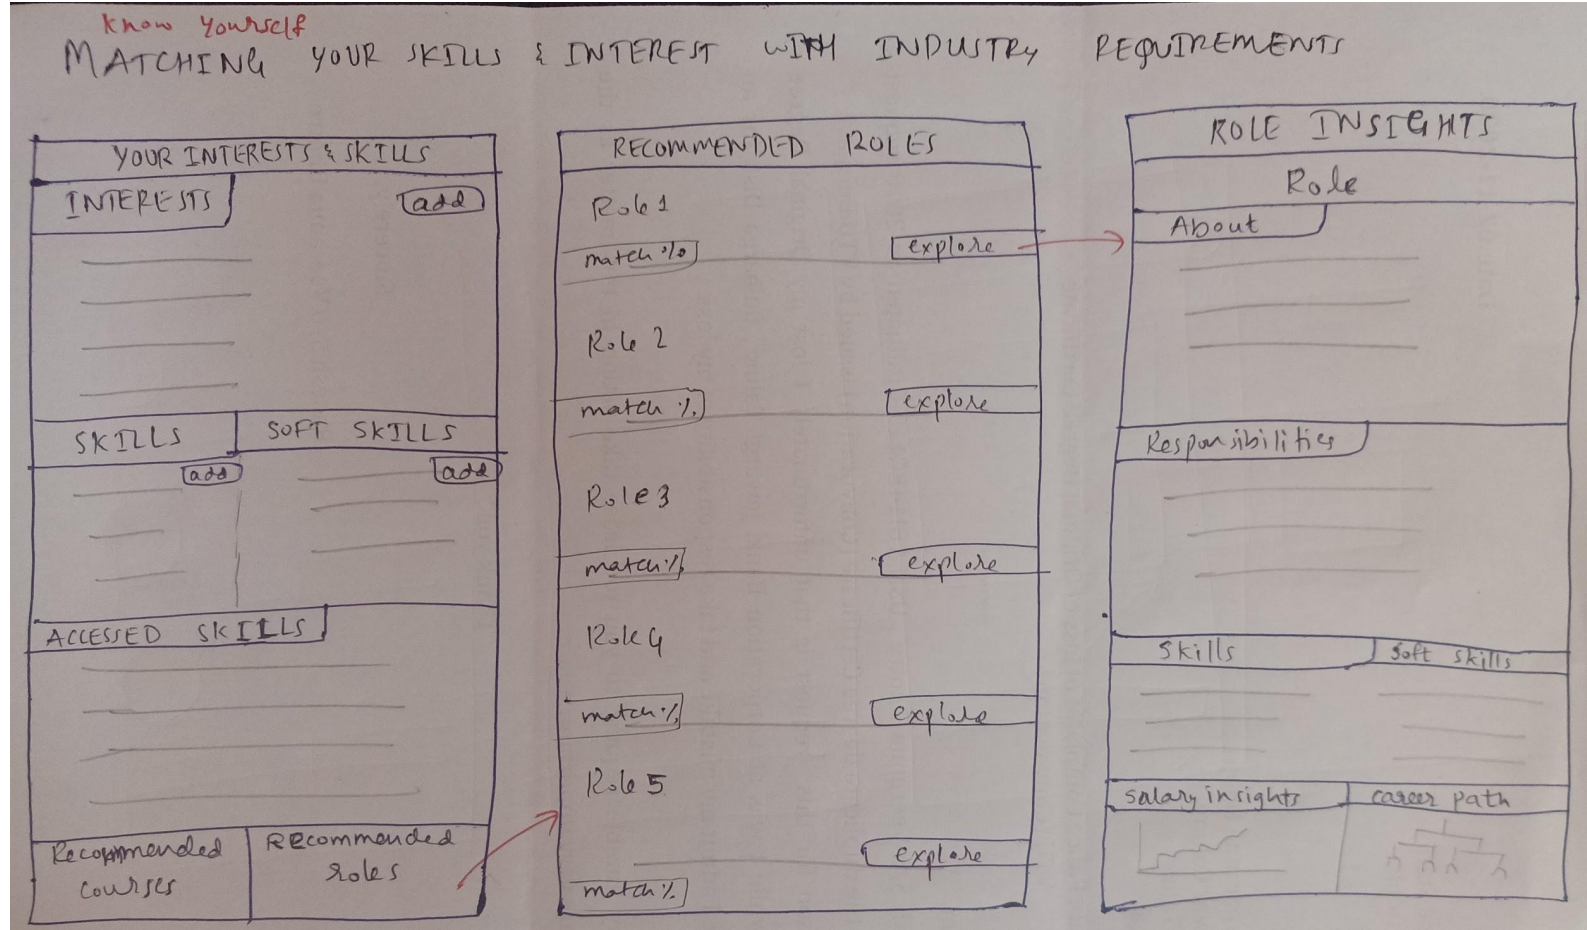 Know Yourself
MATCHING YOUR SKILLS & INTEREST WITH INDUSTRY REQUIREMENTS
YOUR INTERESTS & SKILLS
INTERESTS
add
SKILLS
SOFT SKILLS
add
add
ACCESSED SKILLS
Recommended
courses
Recommended
roles
RECOMMENDED ROLES
Role 1
match %
explore
Role 2
match %
explore
Role 3
match %
explore
Role 4
match %
explore
Role 5
explore
match %
ROLE INSIGHTS
Role
About
Responsibilities
Skills
Soft skills
salary insights
career path